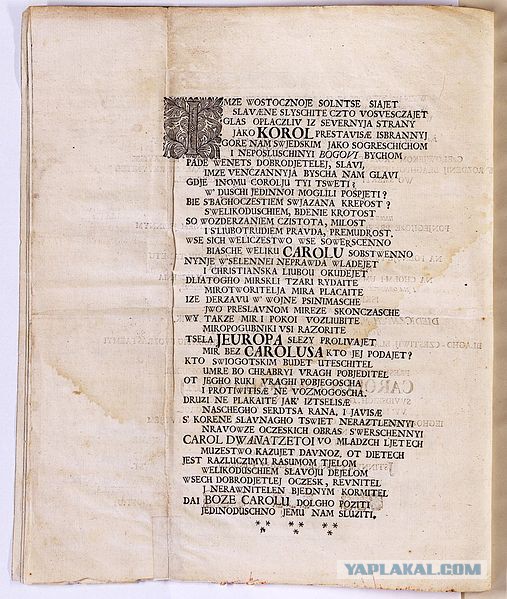 IMZE WOSTOCZNOJE SOLNTSE SIAJET
SLAVÆNE SLYSCHITE CZTO VOSVESCZAJET
GLAS OPLACZLIV IZ SEVERNYJA STRANY
JAKO KOROL PRESTAVISÆ ISBRANNYJ
GORE NAM SWJEDSKIM JAKO SOGRESCHICHOM
I NEPOSLUSCHINYI BOGOVI BYCHOM
PADE WENETS DOBRODJETELEJ, SLAVI,
IMZE VENCZANNYJA BYSCHA NAM GLAVI
GDJE INOMU COROLJU TYI TSWETI?
W' DUSCHI JEDINNOI MOGLILI POSPJETI?
BIE S'BAGHOCZESTIEM SWJAZANA KREPOST?
S'WELIKODUSCHIEM, BDENIE KROTOST
SO WOZDERZANIEM CZISTOTA, MILOST
I S'LUBOTRUDIEM PRAVDA, PREMUDROST,
WSE SICH WELICZESTWO WSE SOWERSCENNO
BIASCHE WELIKU CAROLU SOBSTWENNO
NYNJE W'SELENNEI NEPRAWDA WLADEJET
I CHRISTIANSKA LIUBOU OKUDEJET
DLIATOGHO MIRSKLI TZARI RYDAITE
MIROTWORITELJA MIRA PLACAITE
IZE DERZAVU W' WOJNE PSINIMASCHE
JWO PRESLAVNOM MIREZE SKONCZASCHE
WY TAKZE MIR I POKOI VOZLIUBITE
MIROPOGUBNIKI VSI RAZORITE
TSELA JEUROPA SLEZY PROLIVAJET
MIR BEZ CAROLUSA KTO JEJ PODAJET?
KTO SWIOGOTSKIM BUDET UTESCHITEL
UMRE BO CHRABRYI VRAGH POBJEDITEL
OT JEGHO RUKI VRAGHI POBJEGOSCHA
I PROTIWITISÆ NE VOZMOGOSCHA.
DRUZI NE PLAKAITE JAK' IZTSELISÆ
NASCHEGHO SERDTSA RANA, I JAVISÆ
S' KORENE SLAVNAGHO TSWIET NERAZTLENNYI
NRAVOWZE OCZESKICH OBRAS S'WERSCHENNYI
CAROL DWANATZETOI VO MLADZCH LJETCH
MUZESTWO KAZUJET DAVNOZ, OT DIETECH
JEST RAZLUCZIMYI RASUMOM TJELOM
WELIKODUSCHIEM SLAVOJU DEJELOM
WSECH DOBRODJETLEJ OCZESK, REVNITEL
J NERAWNITELEN BJEDNYM KORMITEL
DAI BOZE CAROLU DOLGHO POZITI
JEDINODUSCHNO JEMU NAM SLUZITI.
YAPLAKAL.COM